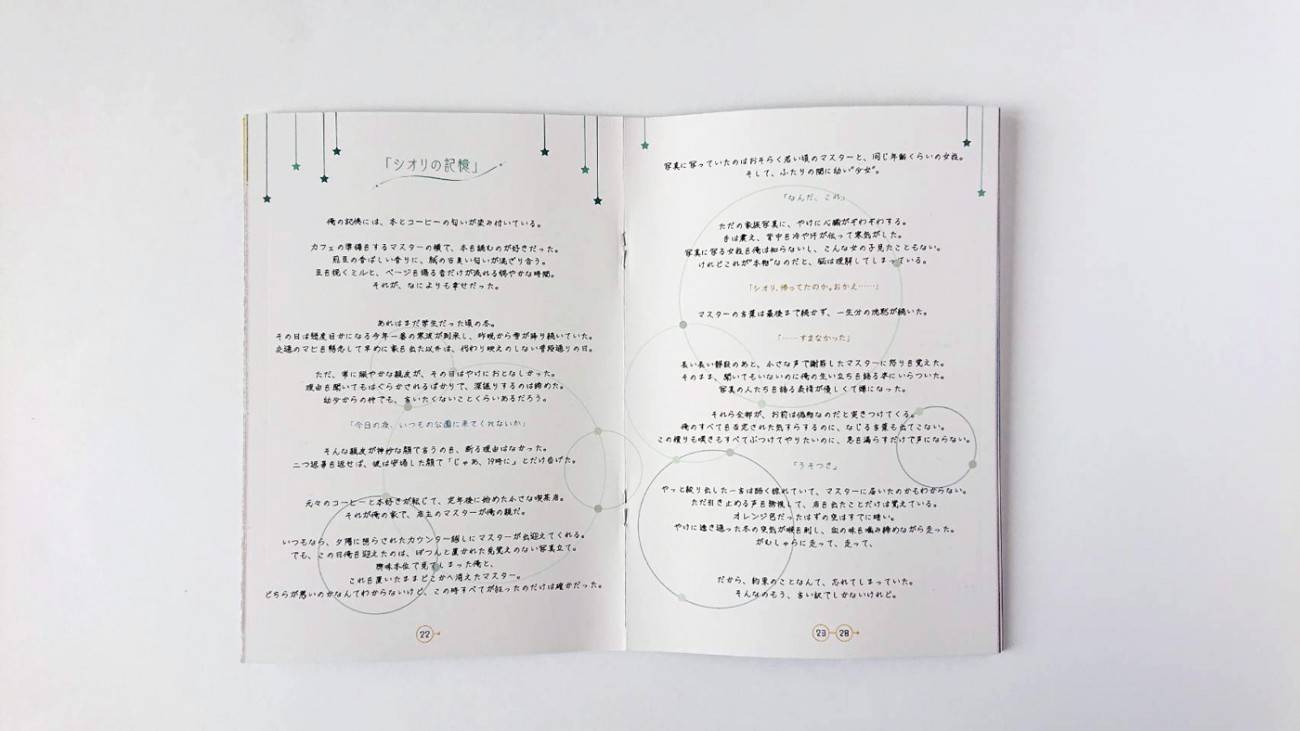 「シオリの記憶」
俺の記憶には、本とコーヒーの匂いが染み付いている。
カフェの準備をするマスターの横で、本を読むのが好きだった。
煎豆の香ばしい香りに、紙の古臭い匂いが混ざり合う。
豆を挽くミルと、ページを捲る音だけが流れる穏やかな時間。
それが、なによりも幸せだった。
あれはまだ学生だった頃の冬。
その日は幾度目かになる今年一番の寒波が到来し、昨晩から雪が降り続いていた。
交通のマヒを懸念して早めに家を出た以外は、代わり映えのしない普段通りの日。
ただ、常に賑やかな親友が、その日はやけにおとなしかった。
理由を聞いてもはぐらかされるばかりで、深追いするのは諦めた。
幼少からの仲でも、言いたくないことくらいあるだろう。
「今日の夜、いつもの公園に来てくれないか」
そんな親友が神妙な顔で言うのを、断る理由はなかった。
二つ返事を返せば、彼は安堵した顔で「じゃあ、19時に」とだけ告げた。
元々のコーヒーと本好きが転じて、定年後に始めた小さな喫茶店。
それが俺の家で、店主のマスターが俺の親だ。
いつもなら、夕陽に照らされたカウンター越しにマスターが出迎えてくれる。
でも、この日俺を迎えたのは、ぽつんと置かれた見覚えのない写真立て。
興味本位で見てしまった俺と、
これを置いたままどこかへ消えたマスター。
どちらが悪いのかなんてわからないけど、この時すべてが狂ったのだけは確かだった。
22
写真に写っていたのはおそらく若い頃のマスターと、同じ年齢くらいの女役。
そして、ふたりの間に幼い"少女"。
「なんだ、これ」
ただの家族写真に、やけに心臓がざわざわする。
手は震え、背中を冷や汗が伝って寒気がした。
写真に写る女役を俺は知らないし、こんな女の子見たこともない。
けれどこれが"本物"なのだと、脳は理解してしまっている。
「シオリ、帰ってたのか。おかえ……」
マスターの言葉は最後まで続かず、一生分の沈黙が続いた。
「……すまなかった」
長い長い静寂のあと、小さな声で謝罪したマスターに怒りを覚えた。
そのまま、聞いてもいないのに俺の生い立ちを語る姿にいらついた。
写真の人たちを語る表情が優しくて嫌になった。
それら全部が、お前は偽物なのだと突きつけてくる。
俺のすべてを否定された気すらするのに、なじる言葉も出てこない。
この憤りも嘆きもすべてぶつけてやりたいのに、息を漏らすだけで声にならない。
「うそつき」
やっと絞り出した一言は酷く掠れていて、マスターに届いたのかもわからない。
ただ引き止める声を無視して、店を出たことだけは覚えている。
オレンジ色だったはずの空はすでに暗い。
やけに透き通った冬の空気が喉を刺し、血の味を噛み締めながら走った。
がむしゃらに走って、走って、
だから、約束のことなんて、忘れてしまっていた。
そんなのもう、言い訳でしかないけれど。
23 28